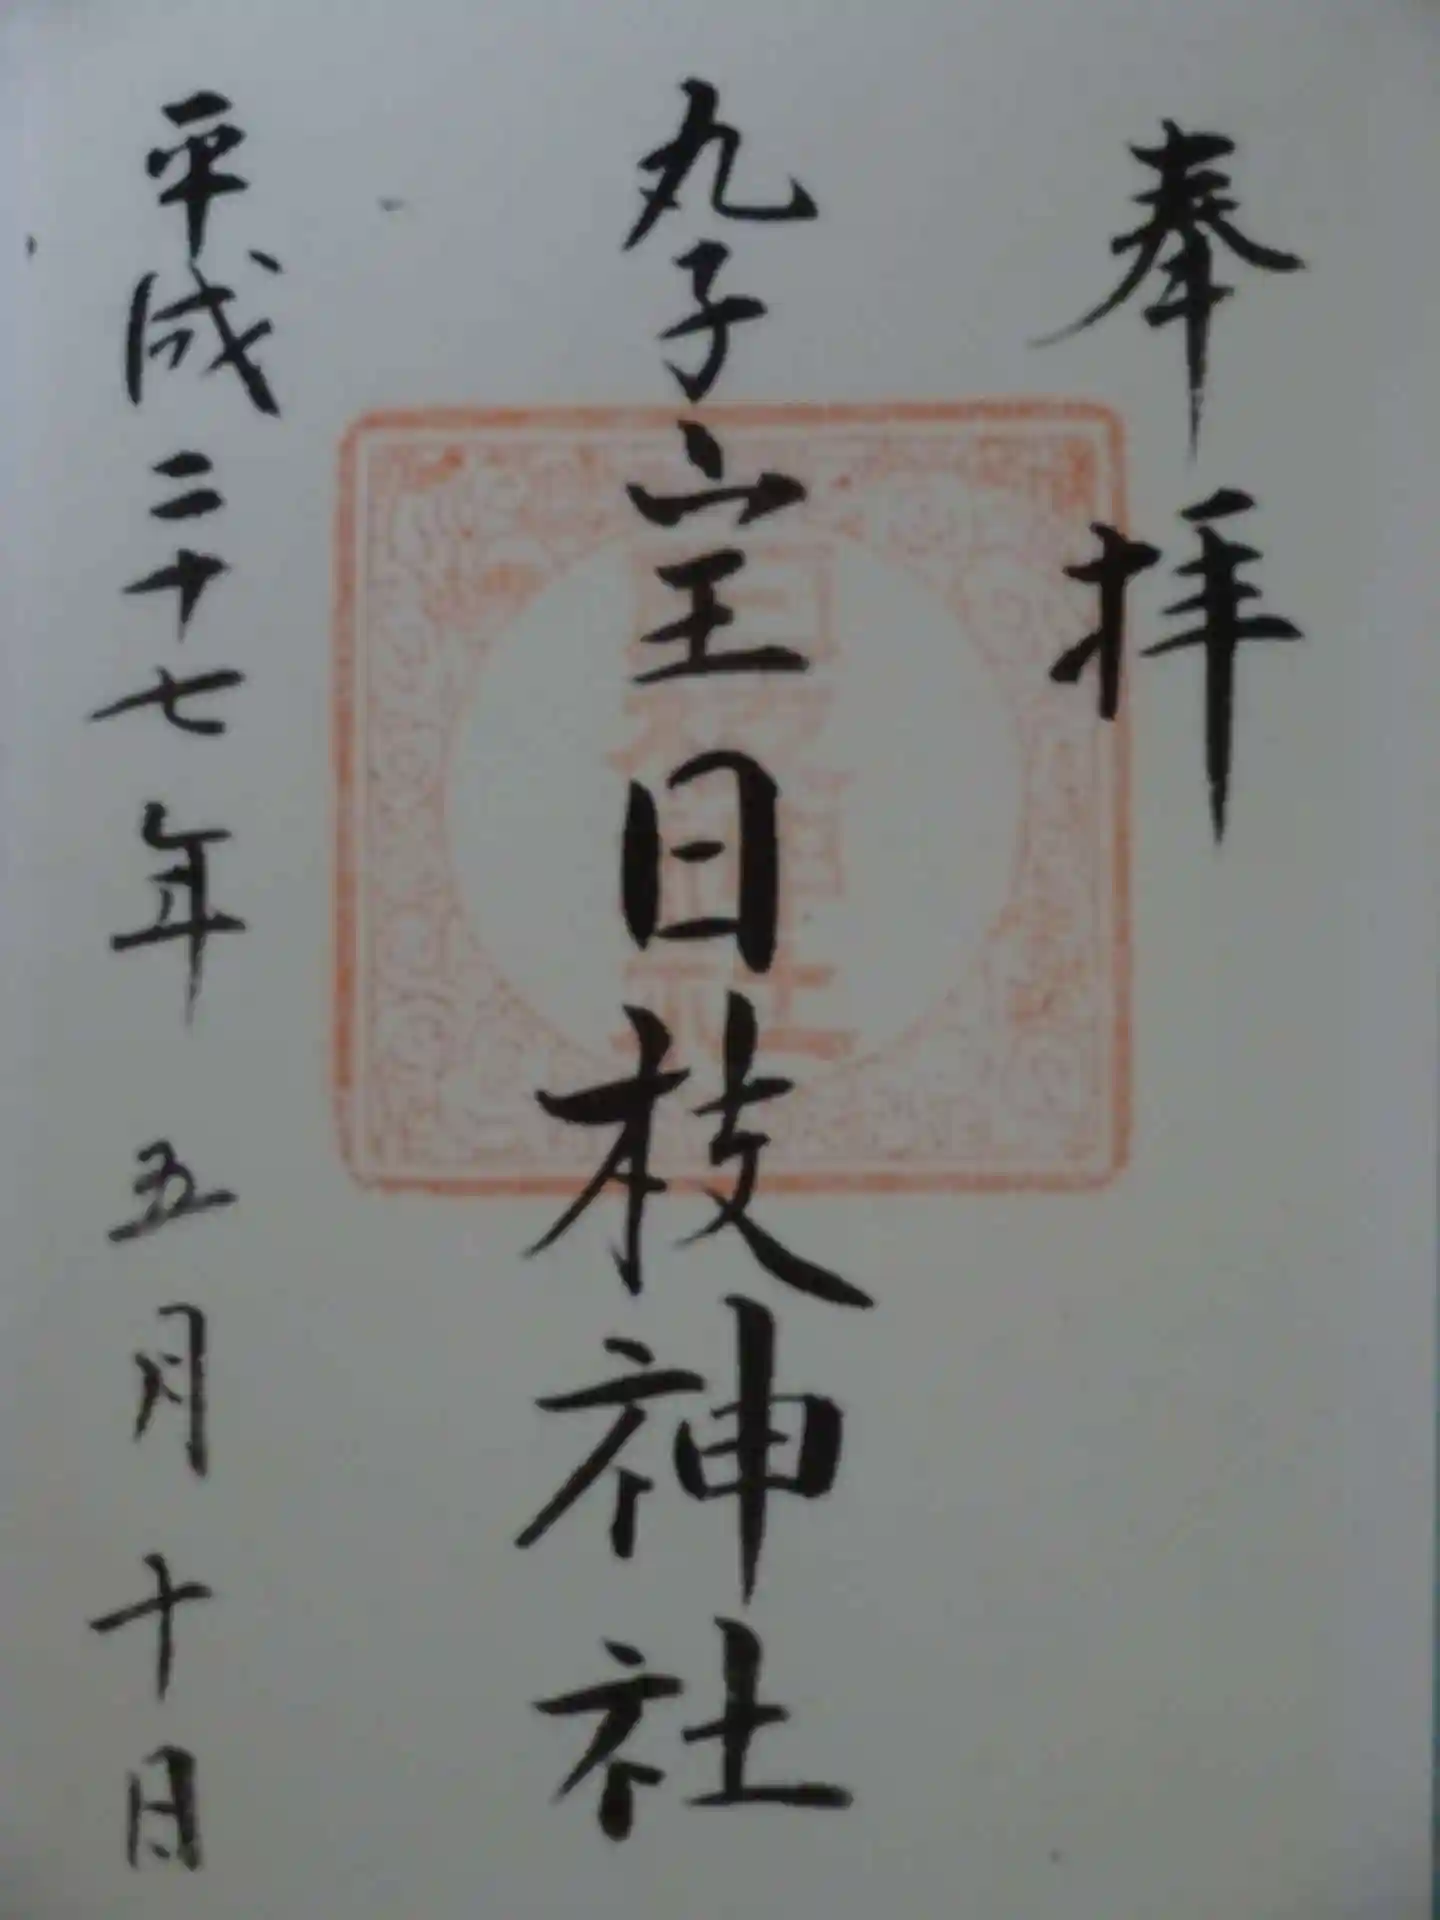 奉拝
丸子山王日枝神社
日枝神社
平成二十七年 五月十日